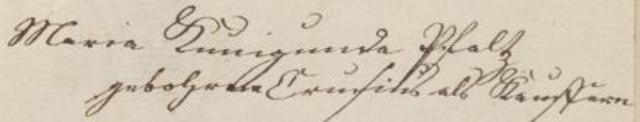 Maria Kunigunda Pfaltz
gebohrne Crusius als Kauffern